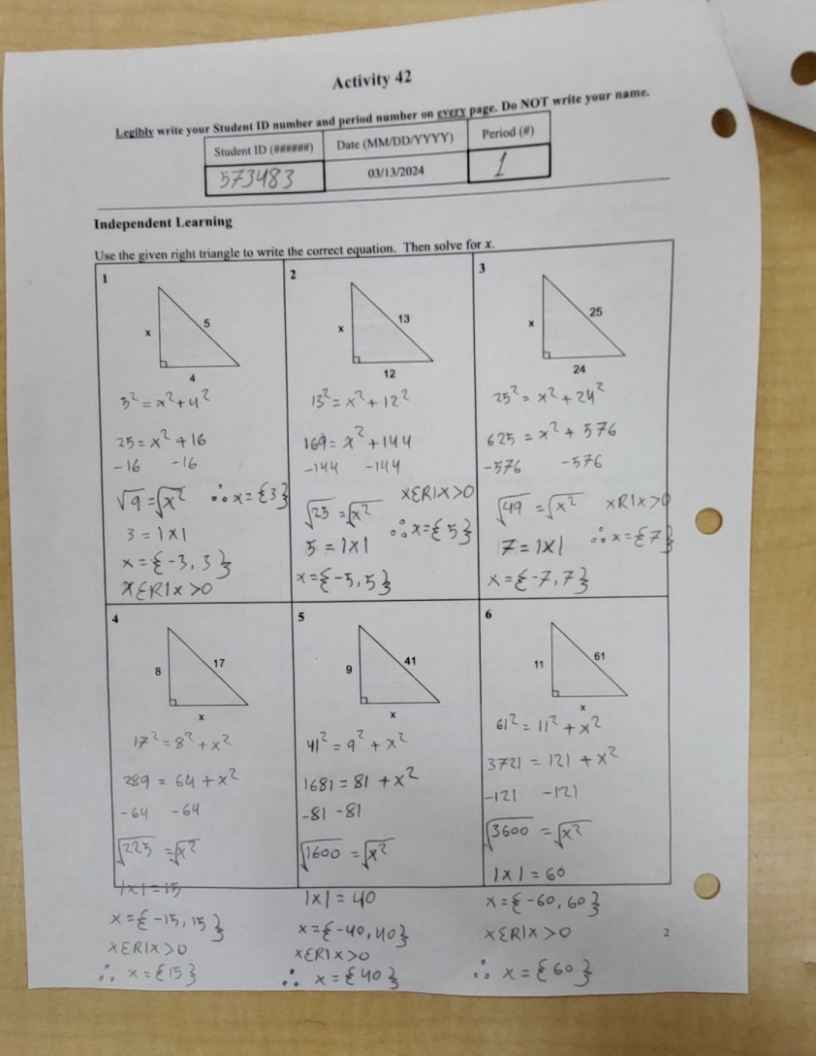 Activity 42
Legibly write your Student ID number and period number on every page. Do NOT write your name.
Student ID (######) Date (MM/DD/YYYY) Period (#)
573483 03/13/2024 1
Independent Learning
Use the given right triangle to write the correct equation. Then solve for x.
1
x 5
4
5² = x² + 4²
25 = x² + 16
-16 -16
√9 = √x² ∴ x = {3}
3 = |x|
x = {-3, 3}
xεR|x >0
2
x 13
12
13² = x² + 12²
169 = x² + 144
-144 -144
xεR|x>0
√25 = √x²
∴ x = {5}
5 = |x|
x = {-5, 5}
3
x 25
24
25² = x² + 24²
625 = x² + 576
-576 -576
√49 = √x² xR|x>0
7 = |x| ∴ x = {7}
x = {-7, 7}
4
8 17
x
17² = 8² + x²
289 = 64 + x²
-64 -64
√225 = √x²
|x| = 15
x = {-15, 15}
xεR|x>0
∴ x = {15}
5
9 41
x
41² = 9² + x²
1681 = 81 + x²
-81 -81
√1600 = √x²
|x| = 40
x = {-40, 40}
xεR|x>0
∴ x = {40}
6
11 61
x
61² = 11² + x²
3721 = 121 + x²
-121 -121
√3600 = √x²
|x| = 60
x = {-60, 60}
xεR|x>0
∴ x = {60}
2